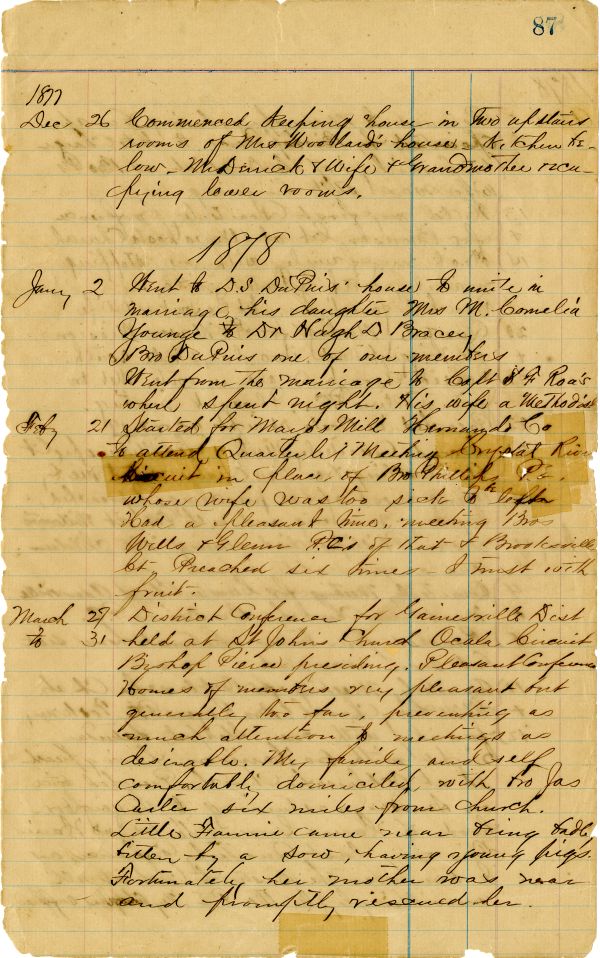 87
1877
Dec 26 Commenced keeping house in two upstairs
rooms of Mrs Woolard's house - Kitchen be-
low - Mr Derrick & Wife & Grandmother occu-
pying lower rooms.
1878
Jany 2 Went to D.S. DuPuis' house to unite in
marriage, his daughter Mrs M. Cornelia
Younge to Dr Hugh D Bracey
Bro DuPuis one of our members
Went from the marriage to Capt
where spent night. His wife a Methodist
Feby 21 Started for Mayos Mill Hernando Co
to attend Quarterly Meeting Crystal River
Circuit in place of Bro Phillips P.E.
whose wife was too sick
Had a pleasant time, meeting Bros
Wills & Glenn P.C's of that & Brooksville
Ct Preached six times - I trust with
fruit.
March 27 District Conference for Gainesville Dist
to 31 held at St Johns Church Ocala Circuit
Bishop Pierce presiding. Pleasant Conference
Homes of members very pleasant but
generally too far, preventing as
much attention to meetings as
desirable. My family and self
comfortably domiciled, with Bro Jas
Carter six miles from Church.
Little Fannie came near being badly
bitten by a sow, having young pigs.
Fortunately her mother was near
and promptly rescued her.